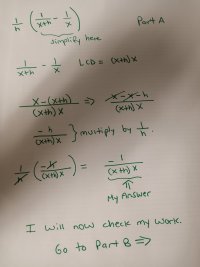 1/h (1/(x+h) - 1/x) Part A
simplify here
1/(x+h) - 1/x LCD = (x+h)x
(x-(x+h))/((x+h)x) => (x-x-h)/((x+h)x)
-h/((x+h)x) } multiply by 1/h.
1/h (-h/((x+h)x)) = -1/((x+h)x)
⇑
My Answer
I will now check my work.
Go to Part B =>